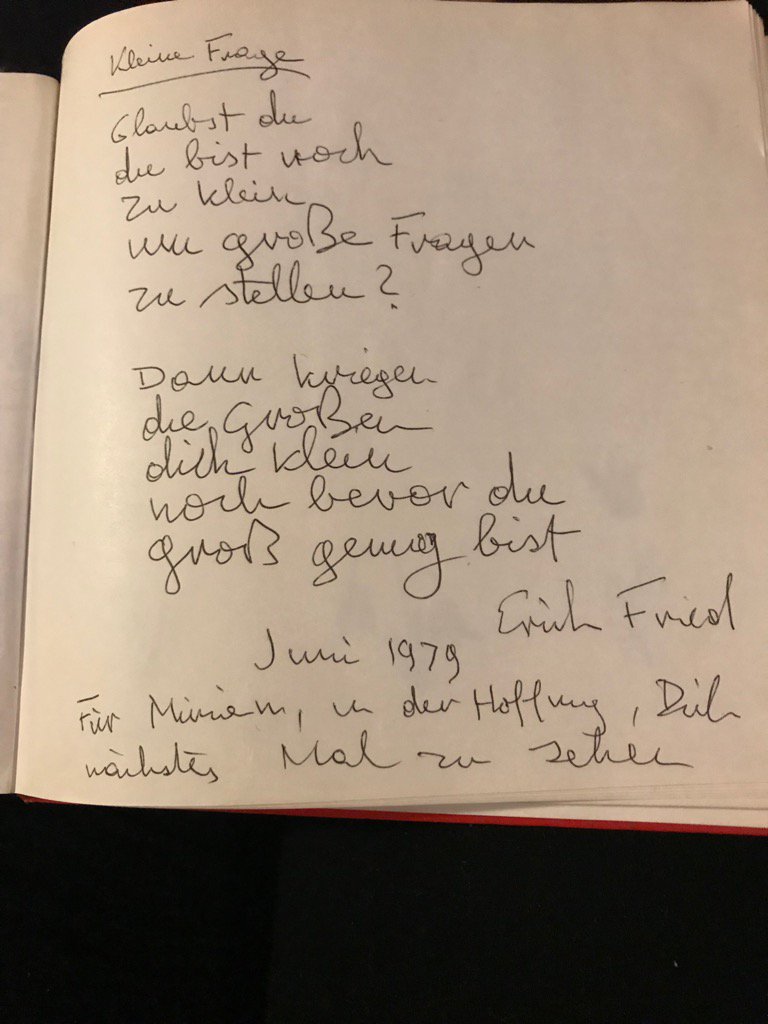 Kleine Frage
Glaubst du
du bist noch
zu klein
um große Fragen
zu stellen?
Dann kriegen
die Großen
dich klein
noch bevor du
groß genug bist
Erich Fried
Juni 1979
Für Miriam, in der Hoffnung, Dich
nächstes Mal zu sehen